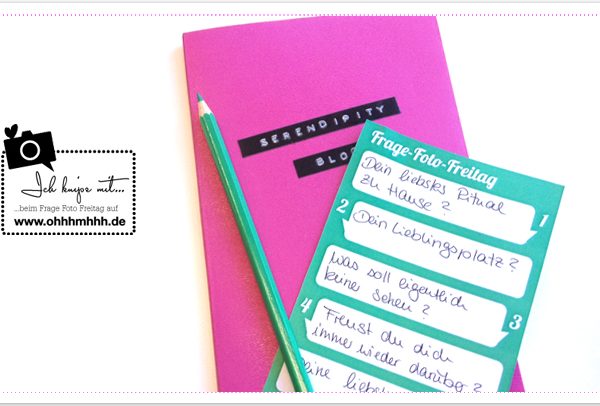 Ich knipse mit...
...beim Frage Foto Freitag auf
www.ohhhmhhh.de
SERENDIPITY
Frage-Foto-Freitag
Dein liebstes Ritual
zu Hause?
1
2
Dein Lieblingsplatz?
was soll eigentlich
keiner sehen?
3
4
Freust du dich
immer wieder darüber?